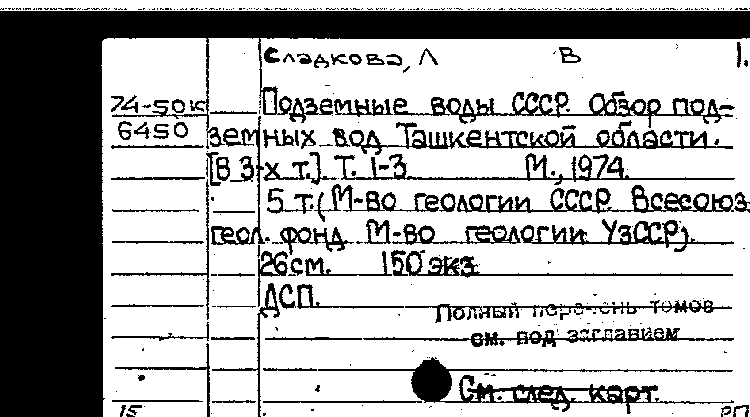 Сладкова, Л В 1.
74-50к Подземные воды СССР. Обзор под-
6450 земных вод Ташкентской области.
[В 3-х т.]. Т. 1-3. М., 1974.
5 т. (М-во геологии СССР. Всесоюз.
геол. фонд. М-во геологии УзССР).
26 см. 150 экз.
ДСП.
Полный перечень томов
см. под заглавием
См. след. карт.
15 РП